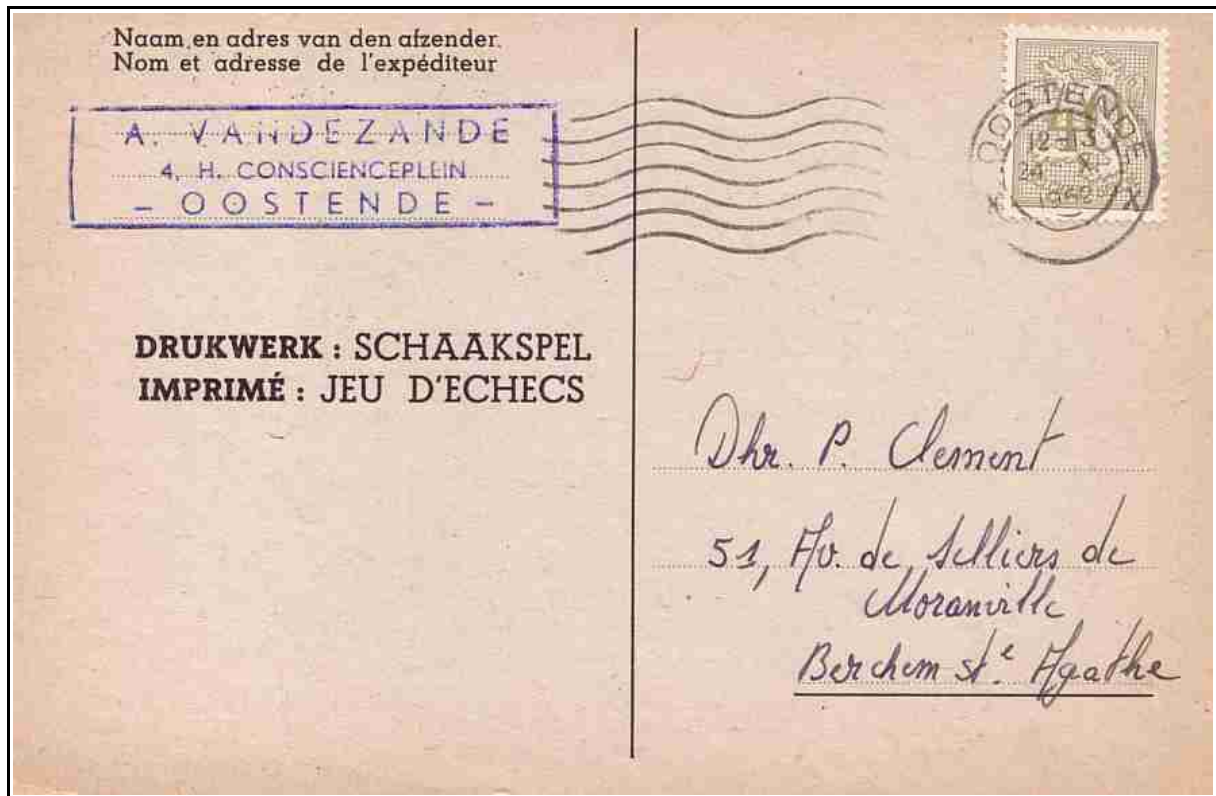 Naam en adres van den afzender.
Nom et adresse de l'expéditeur
A. VANDEZANDE
4, H. CONSCIENCEPLEIN
- OOSTENDE -
OOSTENDE
24 X
X X
DRUKWERK : SCHAAKSPEL
IMPRIMÉ : JEU D'ECHECS
Dhr. P. Clement
51, Av. de Selliers de
Moranville
Berchem Ste Agathe